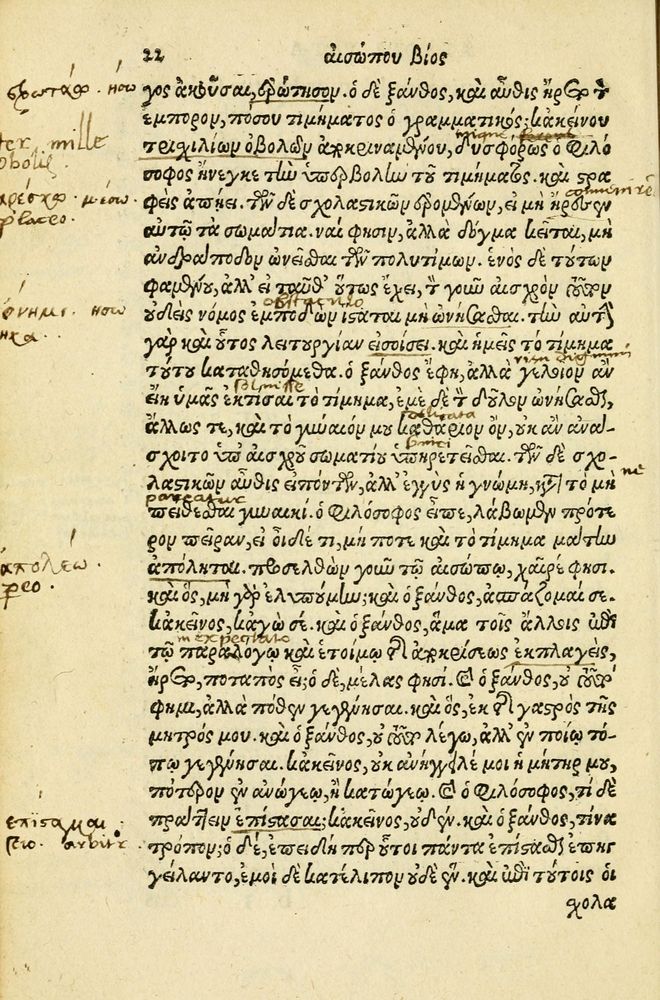 22 αισώπου βίος
γος ἀκοῦσαι, ἐρώτησον. ὁ δὲ ξάνθος, καὶ αὖθις ἤρετο τὸν
ἔμπορον, πόσου τιμήματος ὁ γραμματικός; κἀκείνου
τριχιλίων ὀβολῶν ἀποκριναμένου, δυσφόρως ὁ φιλό
σοφος ἤνεγκε τὴν ὑπερβολὴν τοῦ τιμήματος. καὶ στρα
φεὶς ἀπῄει. τῶν δὲ σχολαστικῶν ἐρομένων, εἰ μὴ ἤρεσεν
αὐτῷ τὰ σωμάτια. ναί φησιν, ἀλλὰ δόγμα κεῖται, μὴ
ἀνδράποδον ὠνεῖσθαι τῶν πολυτίμων. ἑνὸς δὲ τούτων
φαμένου, ἀλλ' εἰ ταῦθ' οὕτως ἔχει, τὸν γοῦν αἰσχρὸν τοῦτον
οὐδεὶς νόμος ἐμποδὼν ἵσταται μὴ ὠνήσασθαι. τὴν αὐτὴν
γὰρ καὶ οὗτος λειτουργίαν εἰσοίσει. καὶ ἡμεῖς τὸ τίμημα
τούτου καταθησόμεθα. ὁ ξάνθος ἔφη, ἀλλὰ γέλοιον ἂν
εἴη ὑμᾶς ἐκτίσαι τὸ τίμημα, ἐμὲ δὲ τὸν δοῦλον ὠνήσασθαι,
ἄλλως τε, καὶ τὸ γύναιόν μου καθάριον ὂν, οὐκ ἂν ἀνά-
σχοιτο ὑπ' αἰσχροῦ σωματίου ὑπηρετεῖσθαι. τῶν δὲ σχο-
λαστικῶν αὖθις εἰπόντων, ἀλλ' ἐγγὺς ἡ γνώμη, κατὰ τὸ μὴ
πείθεσθαι γυναικί. ὁ φιλόσοφος εἶπε, λάβωμεν πρότε
ρον πεῖραν, εἰ οἶδέ τι, μή ποτε καὶ τὸ τίμημα μάτην
ἀπόληται. προσελθὼν γοῦν τῷ αἰσώπῳ, χαῖρέ φησι.
καὶ ὃς, μὴ γὰρ ἐλυπούμην; καὶ ὁ ξάνθος, ἀσπάζομαί σε.
κἀκεῖνος, κἀγὼ σέ. καὶ ὁ ξάνθος, ἅμα τοῖς ἄλλοις ἐπὶ
τῷ παραλόγῳ καὶ ἑτοίμῳ τῆς ἀποκρίσεως ἐκπλαγεὶς,
ἤρετο, ποταπὸς εἶ; ὁ δὲ, μέλας φησί. καὶ ὁ ξάνθος, οὐ τοῦτό
φημι, ἀλλὰ πόθεν γεγέννησαι. καὶ ὃς, ἐκ τῆς γαστρὸς τῆς
μητρός μου. καὶ ὁ ξάνθος, οὐ τοῦτο λέγω, ἀλλ' ἐν ποίῳ τό-
πῳ γεγέννησαι. κἀκεῖνος, οὐκ ἀνήγγειλέ μοι ἡ μήτηρ μου,
πότερον ἐν ἀνώγεῳ, ἢ κατώγεῳ. καὶ ὁ φιλόσοφος, τί δὲ
πράττειν ἐπίστασαι; κἀκεῖνος, οὐδέν. καὶ ὁ ξάνθος, τίνα
τρόπον; ὁ δὲ, ἐπειδήπερ οὗτοι πάντα ἐπίστασθαι ἐπηγ
γείλαντο, ἐμοὶ δὲ κατέλιπον οὐδὲ ἕν. καὶ ἐπὶ τούτοις οἱ
σχολα
ter mille
oboli.
ἀρέσκω. μ. έσω.
placeo.
ἀπολέω.
pereo.
ἐπίσταμαι.